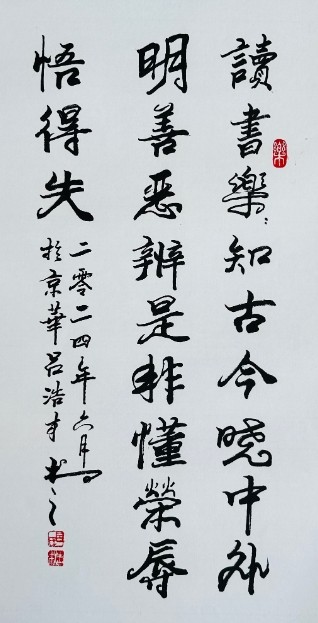 讀書樂：知古今曉中外
明善惡辨是非懂榮辱
悟得失
二零二四年六月
於京華呂浩才书之
樂